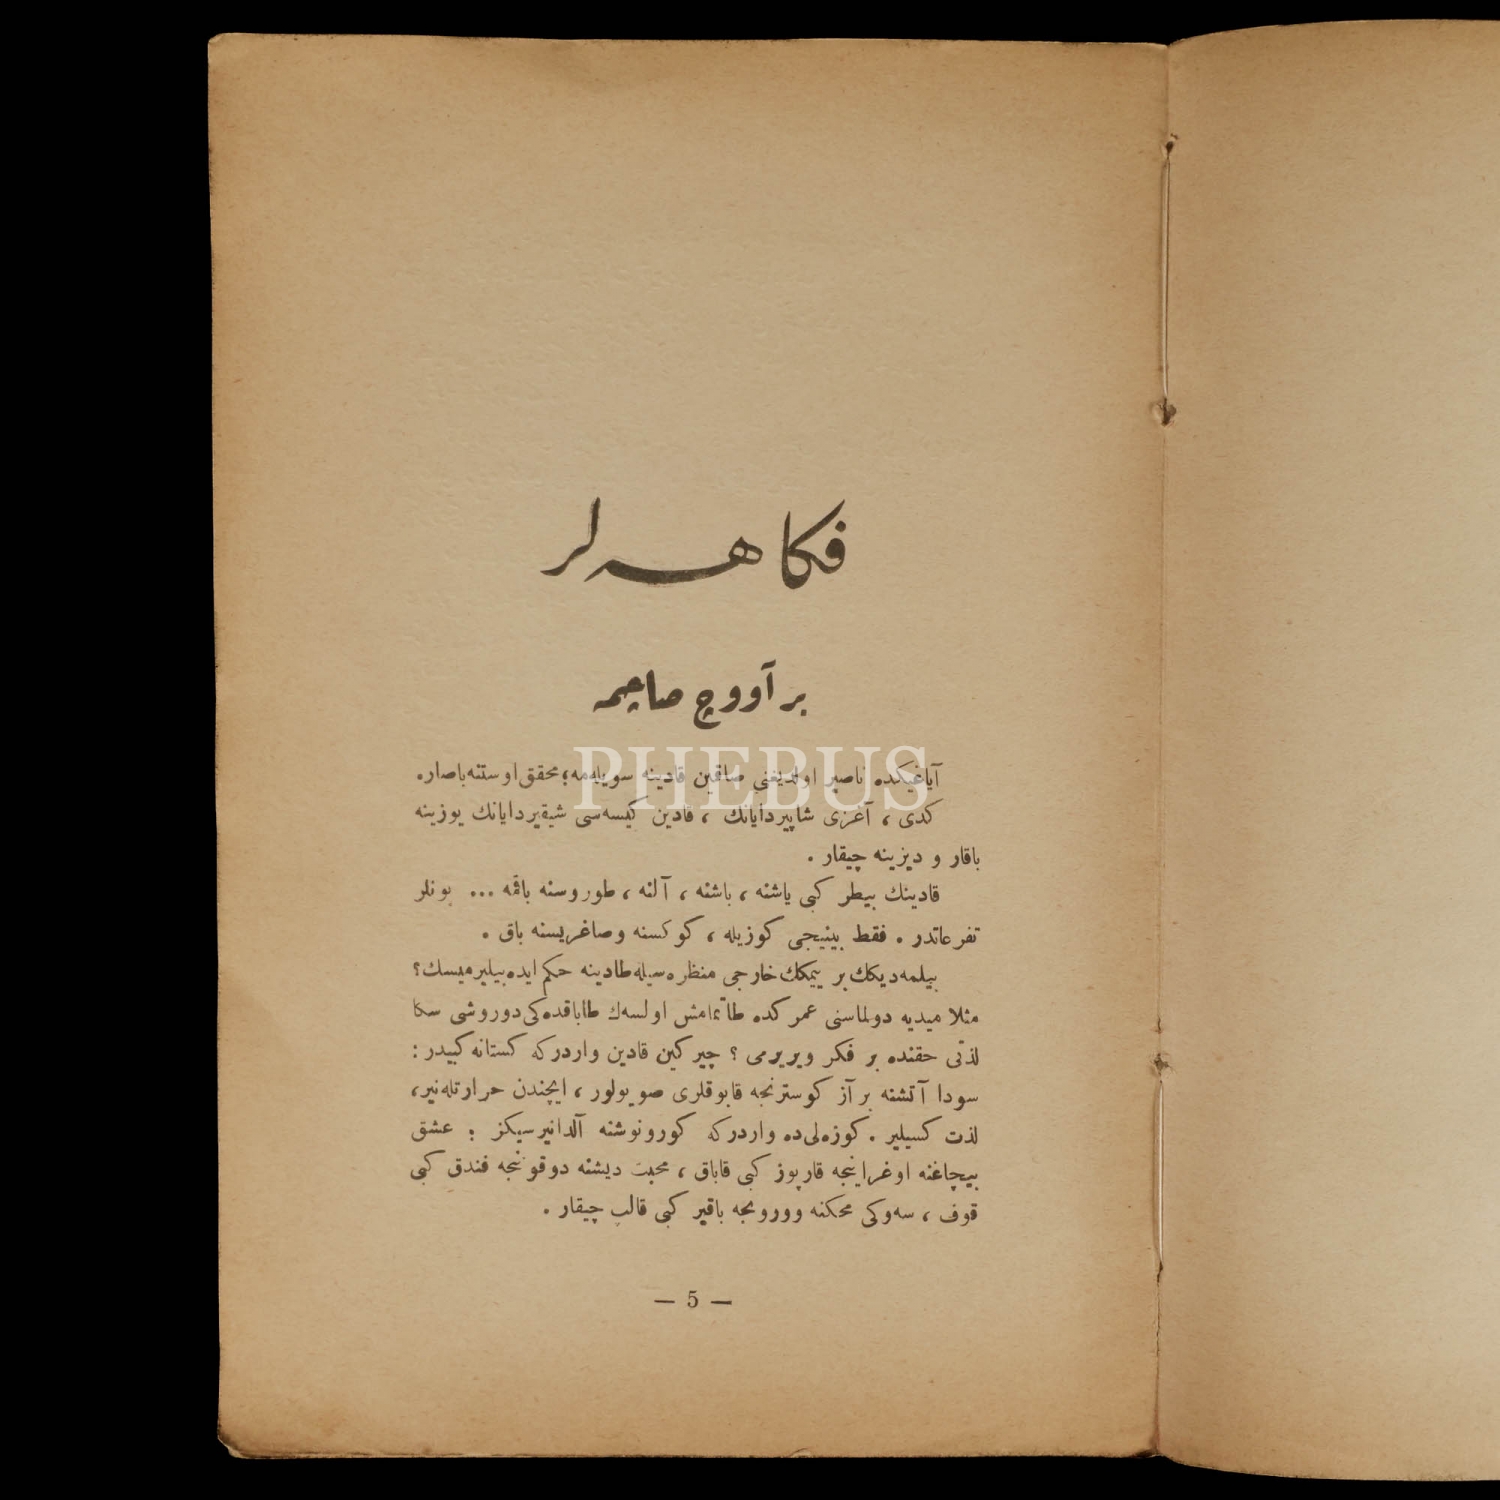 فكاهه‌لر
بر آووچ صاچمه
آياغيكده ناصير اولديغنى صاقين قادينه سويله‌مه؛ محقق اوستنه باصار.
كدى ، آغزى شاپيردايانك ، قادين كيسه‌سى شيقيردايانك يوزينه
باقار و ديزينه چيقار .
قادينك بيطر كبى ياشنه ، باشنه ، آلنه ، طوروسنه باقمه ... بونلر
تفرعاتدر . فقط بينيجى كوزيله ، كوكسنه وصاغريسنه باق .
بيلمه‌ديكك بر ييمكك خارجى منظره‌سيله طادينه حكم ايده‌بيليرميسك؟
مثلا ميديه دولماسنى عمركده طاتمامش اولسه‌ك طاباقده‌كى دوروشى سكا
لذتى حقنده بر فكر ويريرمى ؟ چيركين قادين واردركه كستانه كبيدر :
سودا آتشنه بر آز كوسترنجه قابوقلرى صويولور ، ايچندن حرارتله‌نير،
لذت كسيلير . كوزه‌لى‌ده واردركه كورونوشنه آلدانيرسيكز : عشق
بيچاغنه اوغراينجه قارپوز كبى قاباق ، محبت ديشنه دوقوننجه فندق كبى
قوف ، سه‌وكى محكنه وورونجه باقير كبى قالب چيقار .
— 5 —
PHEBUS